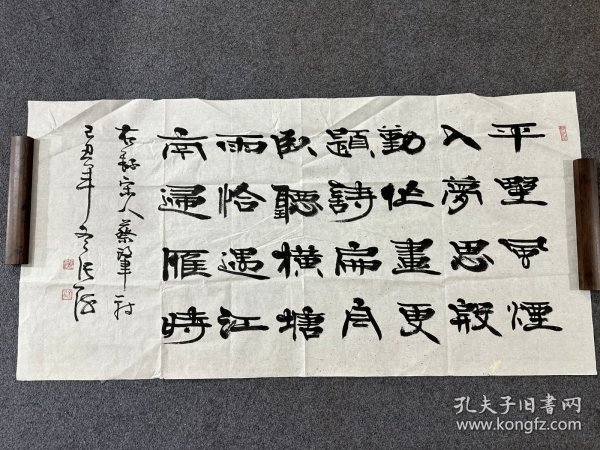 平野風煙
入夢思殷
勤作畫更
題詩扁舟
臥聽橫塘
雨恰遇江
南歸雁時
右錄宋人蔡肇詩
己丑年
孔夫子旧书网
www.kongfz.com